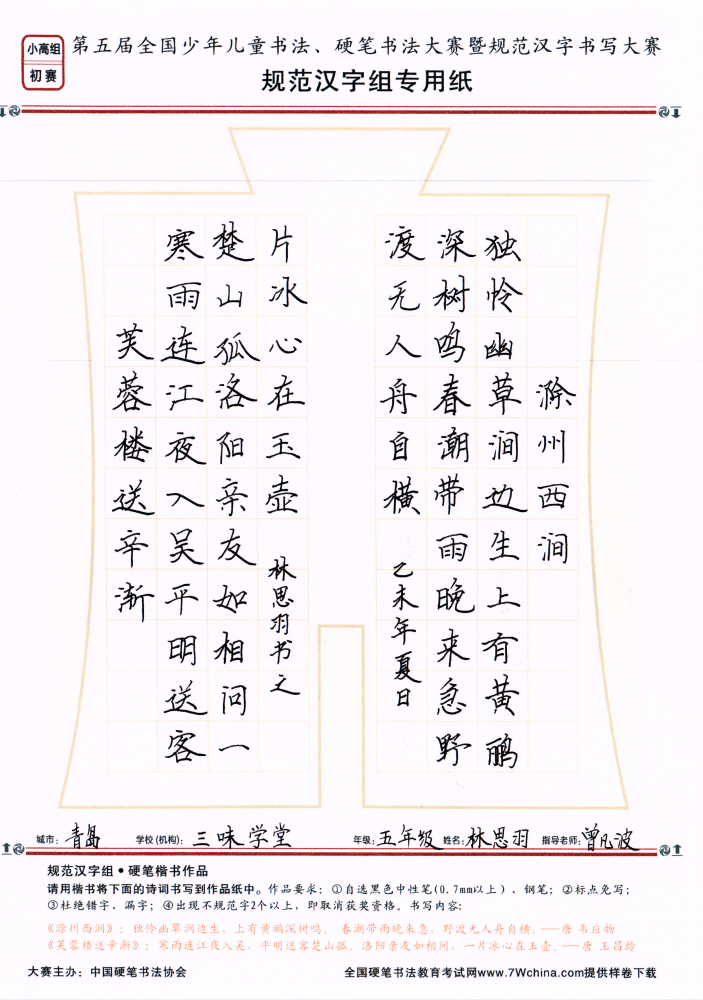 小高组
初赛
第五届全国少年儿童书法、硬笔书法大赛暨规范汉字书写大赛
规范汉字组专用纸
滁州西涧
独怜幽草涧边生上有黄鹂
深树鸣春潮带雨晚来急野
渡无人舟自横
乙未年夏日
片冰心在玉壶
林思羽书之
楚山孤洛阳亲友如相问一
寒雨连江夜入吴平明送客
芙蓉楼送辛渐
城市：青岛 学校(机构)：三味学堂 年级：五年级 姓名：林思羽 指导老师：曾凡波
规范汉字组●硬笔楷书作品
请用楷书将下面的诗词书写到作品纸中。作品要求：①自选黑色中性笔(0.7mm以上)、钢笔；②标点免写；
③杜绝错字、漏字；④出现不规范字2个以上，即取消获奖资格。书写内容：
《滁州西涧》：独怜幽草涧边生，上有黄鹂深树鸣。 春潮带雨晚来急，野渡无人舟自横。——唐 韦应物
《芙蓉楼送辛渐》：寒雨连江夜入吴，平明送客楚山孤。洛阳亲友如相问，一片冰心在玉壶。——唐 王昌龄
大赛主办：中国硬笔书法协会
全国硬笔书法教育考试网www.7Wchina.com提供样卷下载